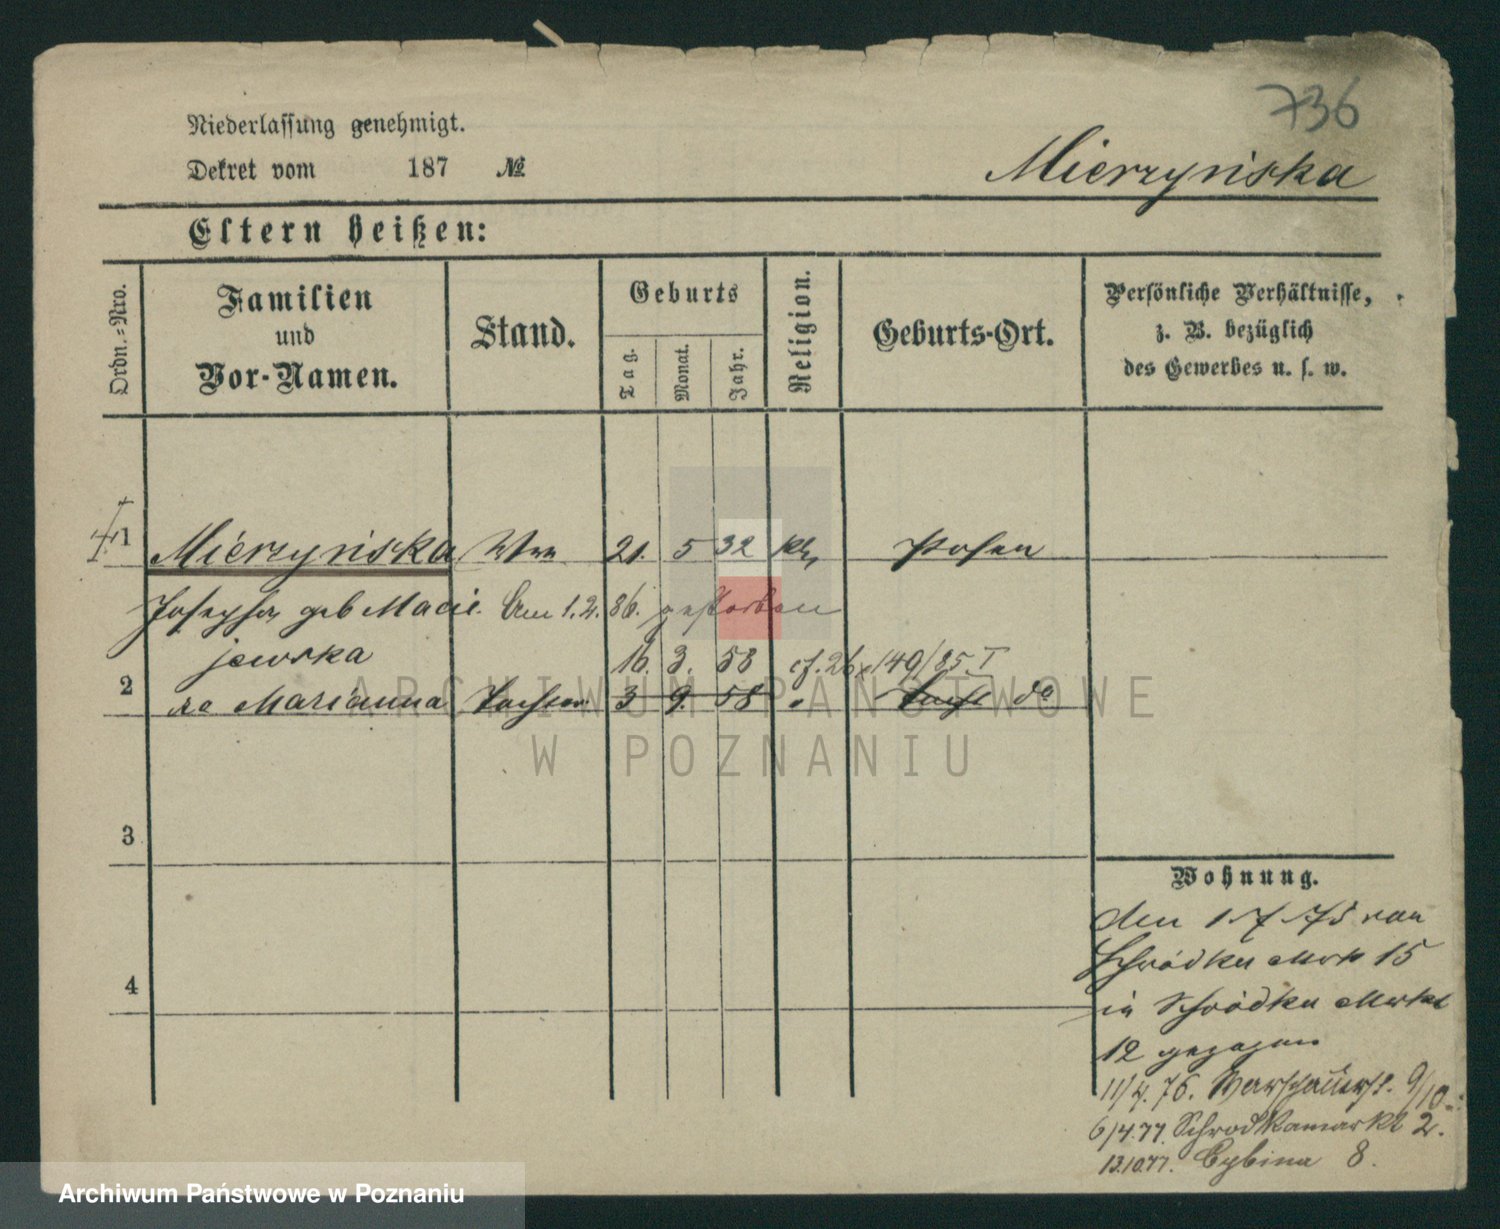 736
Niederlassung genehmigt.
Dekret vom 187 № Mierzyńska
Eltern heißen:
Ordn.-Nro. Familien und Vor-Namen. Stand. Geburts Tag. Monat. Jahr. Religion. Geburts-Ort. Persönliche Verhältnisse, z. B. bezüglich des Gewerbes u. s. w.
1 Mierzyńska Wwe 21. 5 32 kth Posen
Josepha geb Macie- Am 1.2.86. gestorben
jewska 16. 3. 58 cf. 26 149/85. I
2 Marianna Tochter 3 9. 58 " do
3
4
Wohnung.
den 1 7 75 von
Schrodka Mrkt 15
in Schrodka Markt
12 gezogen
11/4. 76. Warschauerst. 9/10.
6/4.77. Schrodkamarkt 2.
13.10.77. Cybina 8.
ARCHIWUM PAŃSTWOWE
W POZNANIU
Archiwum Państwowe w Poznaniu